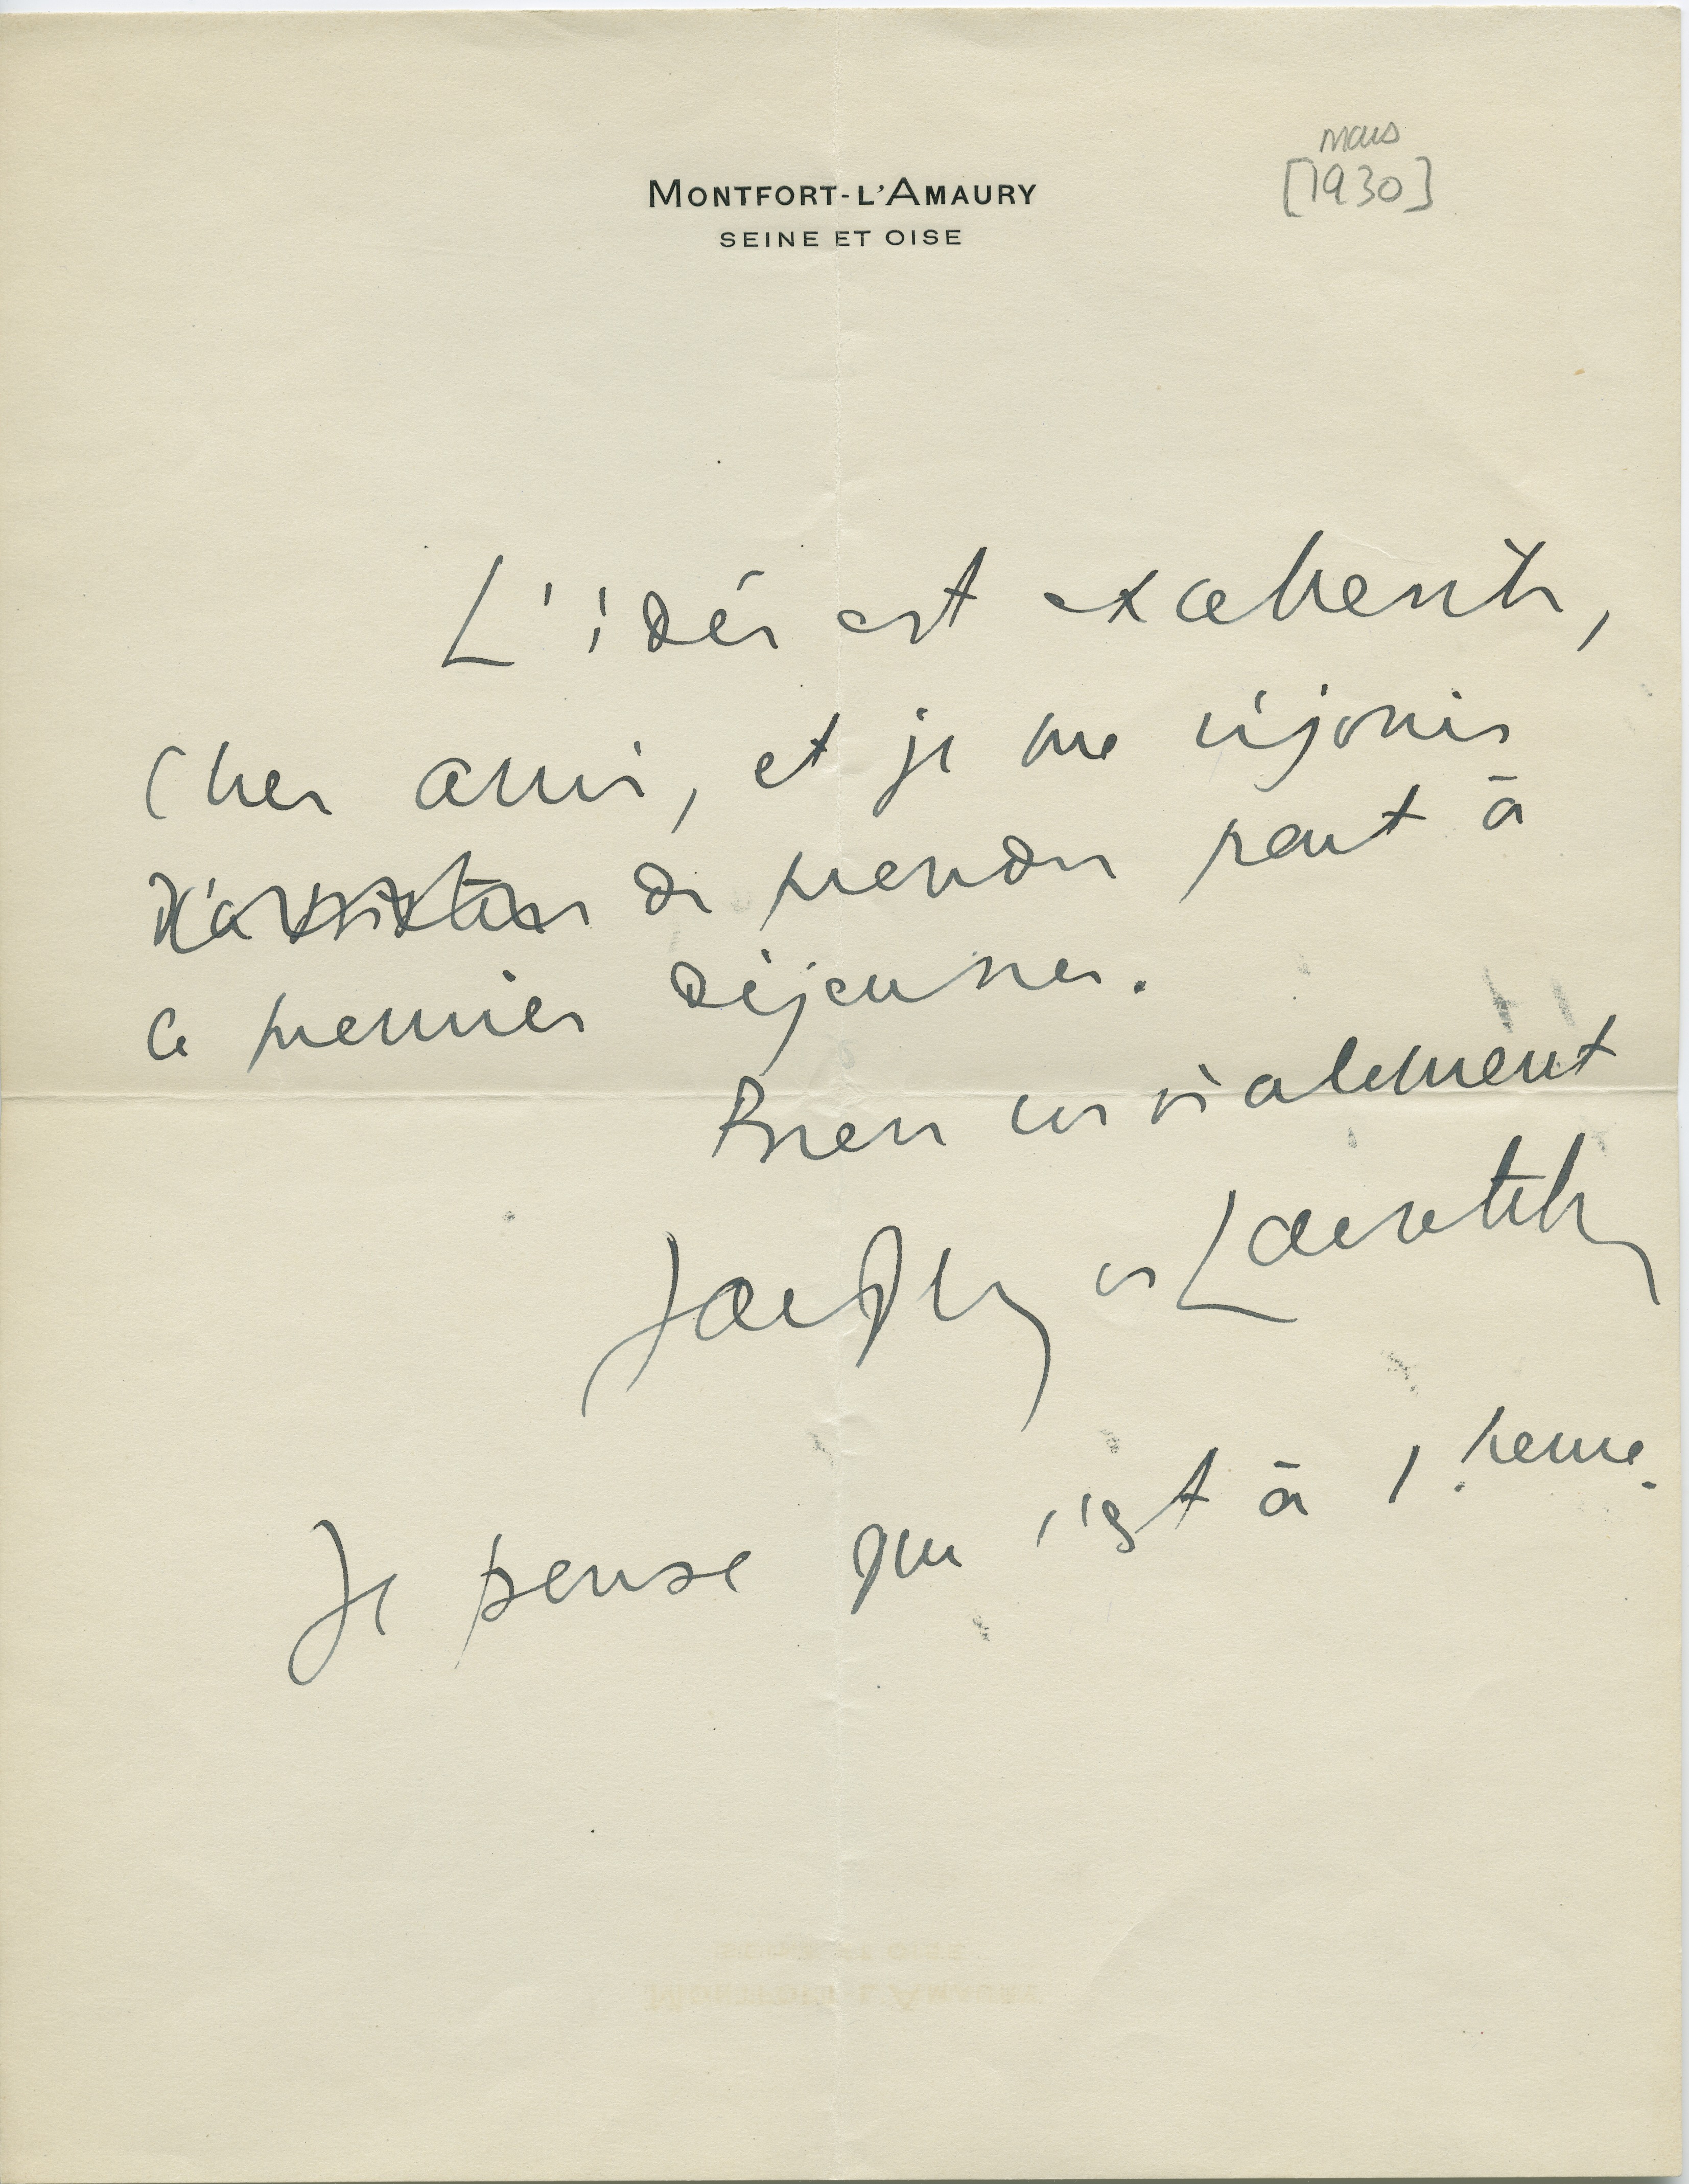 mars
[1930]
MONTFORT-L'AMAURY
SEINE ET OISE
L'idée est excellente,
cher ami, et je me réjouis
d'assister de prendre part à
ce premier déjeuner.
Bien cordialement
Jacques de Lacretelle
Je pense que c'est à 1 heure.